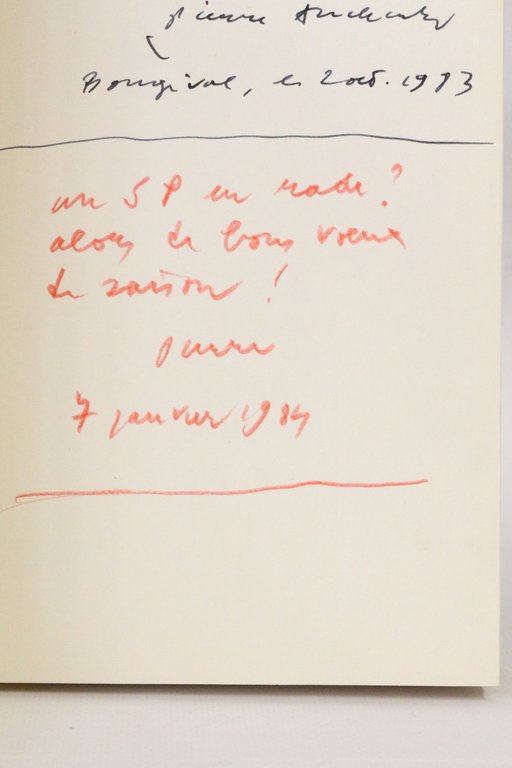 pierre Andreu
Bougival, le 2 oct. 1983
un SP en rade ?
alors de bons voeux
de saison !
pierre
7 janvier 1984